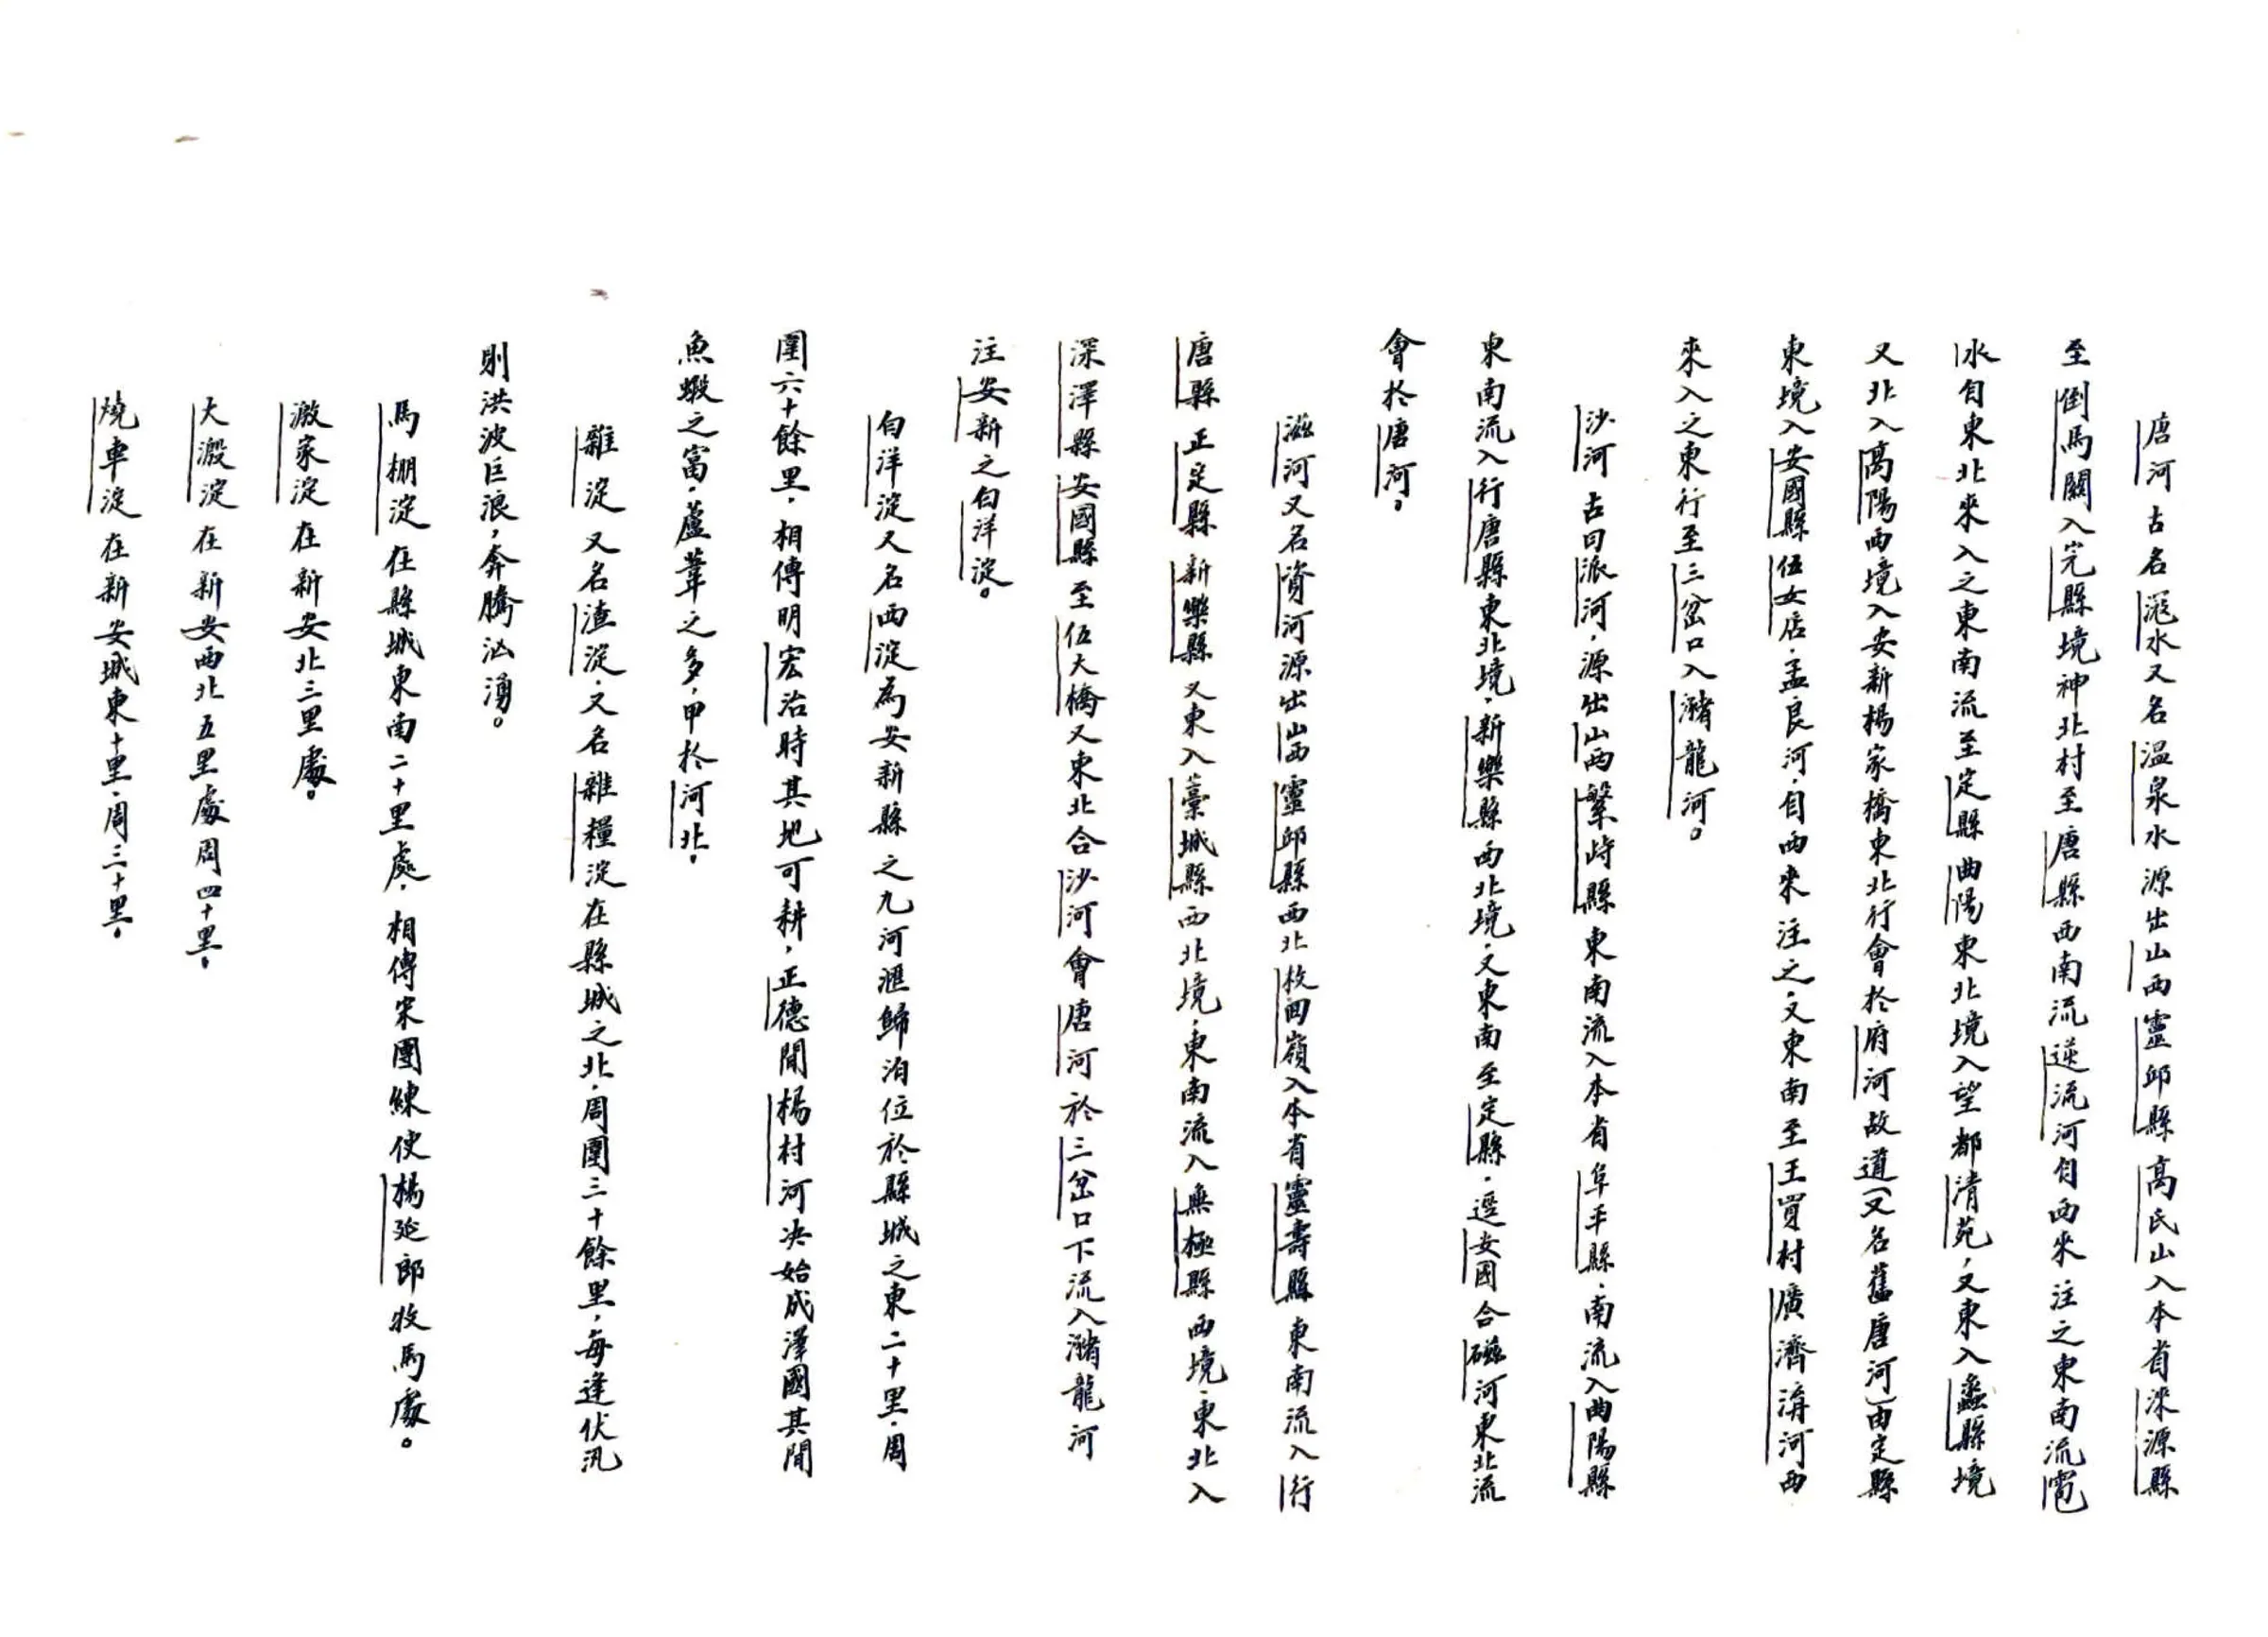 唐河古名滱水又名温泉水源出山西靈邱縣高氏山入本省淶源縣
至倒馬關入完縣境神北村至唐縣西南流逆流河自西來注之東南流雹
水自東北來入之東南流至定縣曲陽東北境入望都清苑，又東入蠡縣境
又北入高陽西境入安新楊家橋東北行會於府河故道（又名舊唐河）由定縣
東境入安國縣伍女店，孟良河，自西來注之，又東南至王買村廣濟渀河西
來入之東行至三岔口入瀦龍河。
沙河古曰派河，源出山西繁峙縣東南流入本省阜平縣，南流入曲陽縣
東南流入行唐縣東北境，新樂縣西北境，又東南至定縣，逕安國合磁河東北流
會於唐河。
滋河又名資河源出山西靈邱縣西北枚囬嶺入本省靈壽縣東南流入行
唐縣正定縣新樂縣又東入藁城縣西北境，東南流入無極縣西境，東北入
深澤縣安國縣至伍大橋又東北合沙河會唐河於三岔口下流入瀦龍河
注安新之白洋淀。
白洋淀又名西淀為安新縣之九河滙歸泊位於縣城之東二十里，周
圍六十餘里，相傳明宏治時其地可耕，正德間楊村河决始成澤國其間
魚蝦之富，蘆葦之多，甲於河北，
雜淀又名渣淀，又名雜糧淀在縣城之北，周圍三十餘里，每逢伏汛
則洪波巨浪，奔騰汹湧。
馬棚淀在縣城東南二十里處，相傳宋團練使楊延郎牧馬處。
漵家淀在新安北三里處。
大澱淀在新安西北五里處周四十里，
燒車淀在新安城東十里，周三十里，